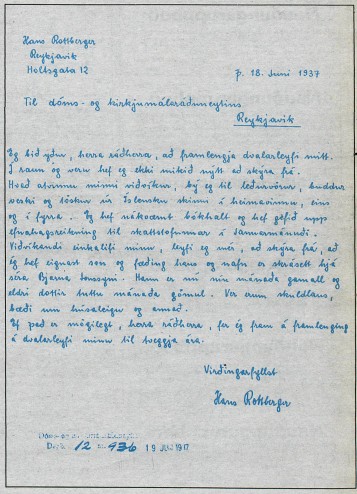 Hans Rottberger
Reykjavik
Holtsgata 12
p. 18. Juni 1937
Til dóms- og kirkjumálaráðuneytins
Reykjavik
Eg bið yður, herra ráðherra, að framlengja dvalarleyfi mitt.
Í raun og veru hef eg ekki mikið nýtt að skýra frá.
Hvað atvinnu minni viðvikur, bý eg til leðurvörur, buddur
veski og töskur úr íslensku skinni í heimavinnu, eins
og í fyrra. Eg hef nákvæmt bókhald og hef gefið upp
efnahagsreikning til skattstofunnar í Janúarmánuði.
Viðvíkandi einkalífi mínu, leyfi eg mér, að skýra frá, að
ég hef eignast son og fæðing hans og nafn er skrásett hjá
séra Bjarna Jonssyni. Hann er nú níu mánaða gamall og
eldri dottir tuttu mánaða gömul. Vér erum skuldlaus,
bæði um húsaleigu og annað.
Ef það er mögulegt, herra ráðherra, fer ég fram á framlenging
á dvalarleyfi mínu til tveggja ára.
Virðingarfyllst
Hans Rottberger
12 nr. 936 19 JUN 1937